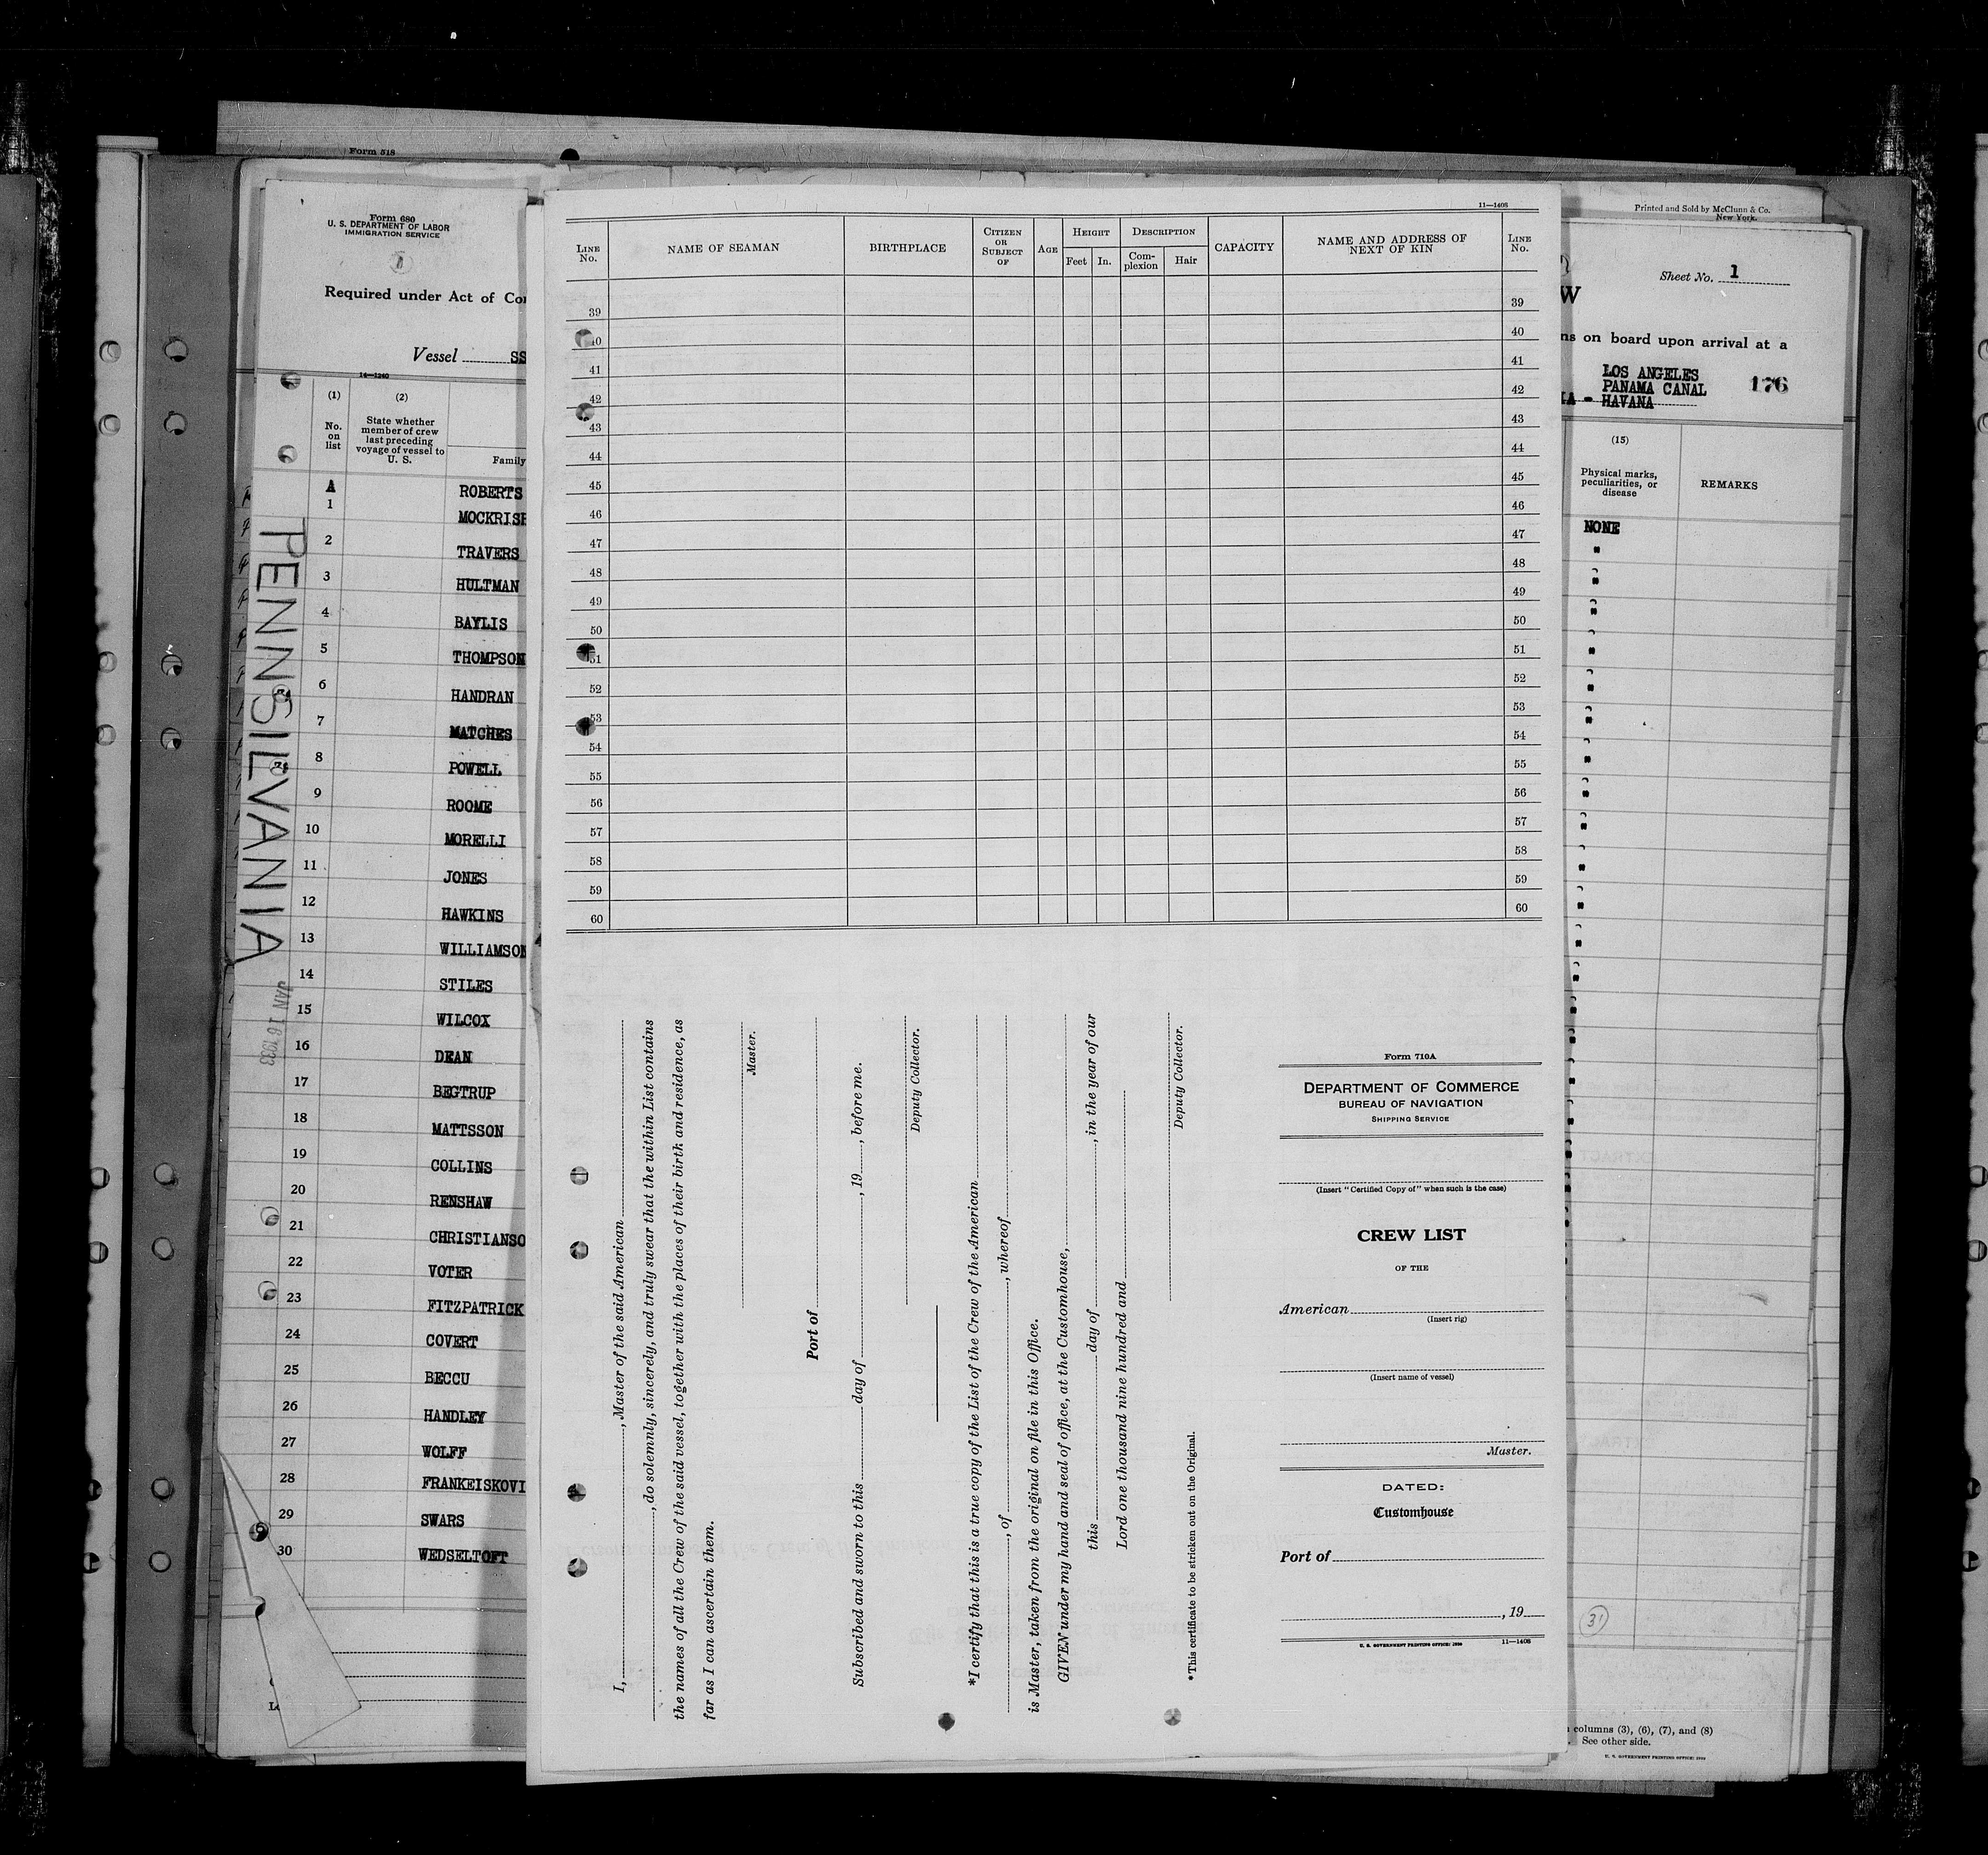 Form 518
Form 680
U. S. DEPARTMENT OF LABOR
IMMIGRATION SERVICE
Required under Act of Co
Vessel SS
14—1240
(1) (2)
No. on list
State whether member of crew last preceding voyage of vessel to U. S.
Family
A ROBERTS
1 MOCKRIS
2 TRAVERS
3 HULTMAN
4 BAYLIS
5 THOMPSON
6 HANDRAN
7 MATCHES
8 POWELL
9 ROOME
10 MORELLI
11 JONES
12 HAWKINS
13 WILLIAMSON
14 STILES
15 WILCOX
16 DEAN
17 BEGTRUP
18 MATTSSON
19 COLLINS
20 RENSHAW
21 CHRISTIANSO
22 VOTER
23 FITZPATRICK
24 COVERT
25 BECCU
26 HANDLEY
27 WOLFF
28 FRANKEISKOVI
29 SWARS
30 WEDSELTOFT
PENNSILVANIA
JAN 16 1933
11—1408
LINE No.
NAME OF SEAMAN
BIRTHPLACE
CITIZEN OR SUBJECT OF
AGE
HEIGHT
Feet In.
DESCRIPTION
Complexion Hair
CAPACITY
NAME AND ADDRESS OF NEXT OF KIN
LINE No.
39 39
40 40
41 41
42 42
43 43
44 44
45 45
46 46
47 47
48 48
49 49
50 50
51 51
52 52
53 53
54 54
55 55
56 56
57 57
58 58
59 59
60 60
I, , Master of the said American
, do solemnly, sincerely, and truly swear that the within List contains
the names of all the Crew of the said vessel, together with the places of their birth and residence, as
far as I can ascertain them.
Master.
Port of
Subscribed and sworn to this day of , 19 , before me.
Deputy Collector.
*I certify that this is a true copy of the List of the Crew of the American
, of , whereof
is Master, taken from the original on file in this Office.
GIVEN under my hand and seal of office, at the Customhouse,
this day of , in the year of our
Lord one thousand nine hundred and
Deputy Collector.
*This certificate to be stricken out on the Original.
Form 710A
DEPARTMENT OF COMMERCE
BUREAU OF NAVIGATION
SHIPPING SERVICE
(Insert "Certified Copy of" when such is the case)
CREW LIST
OF THE
American
(Insert rig)
(Insert name of vessel)
Master.
DATED:
Customhouse
Port of
, 19
U. S. GOVERNMENT PRINTING OFFICE: 1930 11—1408
Printed and Sold by McClunn & Co.
New York.
Sheet No. 1
W
ns on board upon arrival at a
LOS ANGELES
PANAMA CANAL 176
IA - HAVANA
(15)
Physical marks, peculiarities, or disease
REMARKS
NONE
31
columns (3), (6), (7), and (8)
See other side.